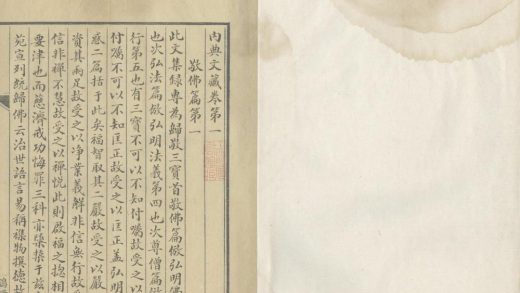 內典文藏卷第一
敬佛篇第一
此文集録專為歸敬三寶首敬佛篇倣弘明佛
也次弘法篇倣弘明法義第四也次尊僧篇倣
行第五也有三寶不可以不知付囑故受之以
付囑不可以不知匡正故受之以匡正盖弘明
惑二篇括于此矣福智取其二嚴故受之以嚴
資其兩足故受之以净業義解非信無行故受
信非禪不慧故受之以禪悅此則啟福之揔相
要津也而慈濟戒功悔罪三科亦槩槩于兹
苑宣列統歸佛云治世語言易稱襍物撰德故